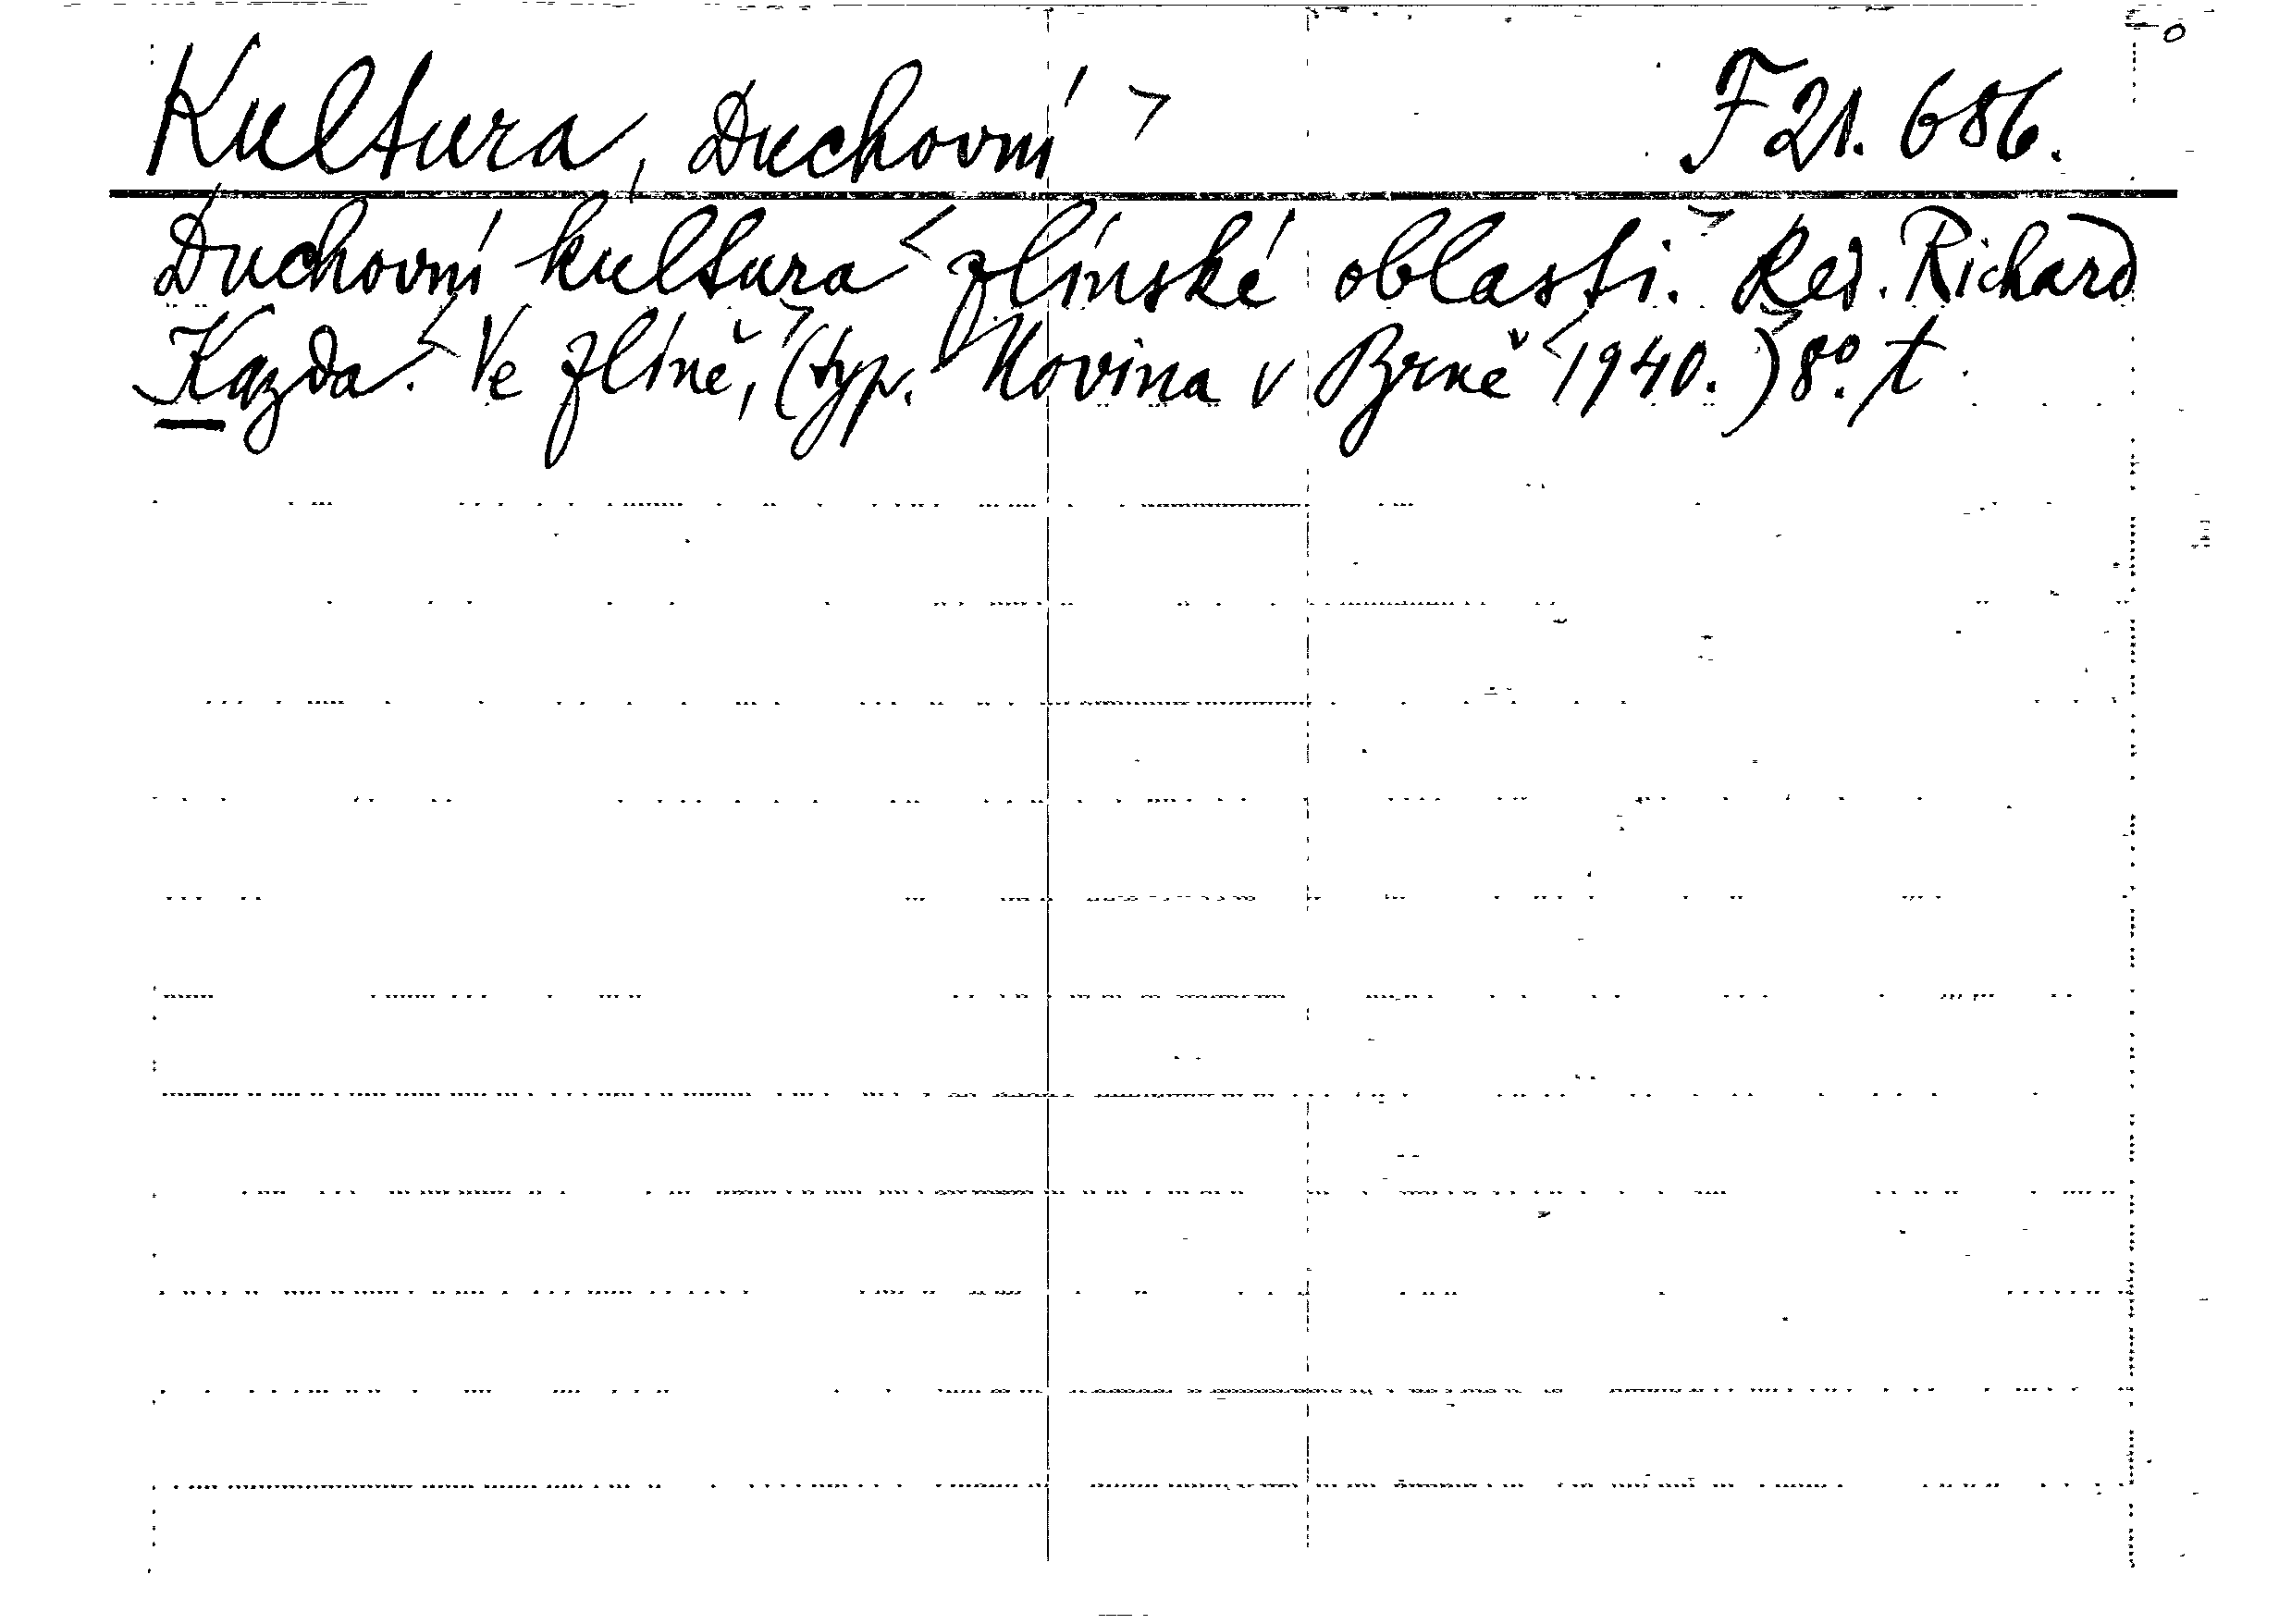 Kultura, Duchovní F 21.686.
Duchovní kultura zlínské oblasti. Red. Richard
Kazda. Ve Zlíně, (typ. Novina v Brně 1940.) 8°. t